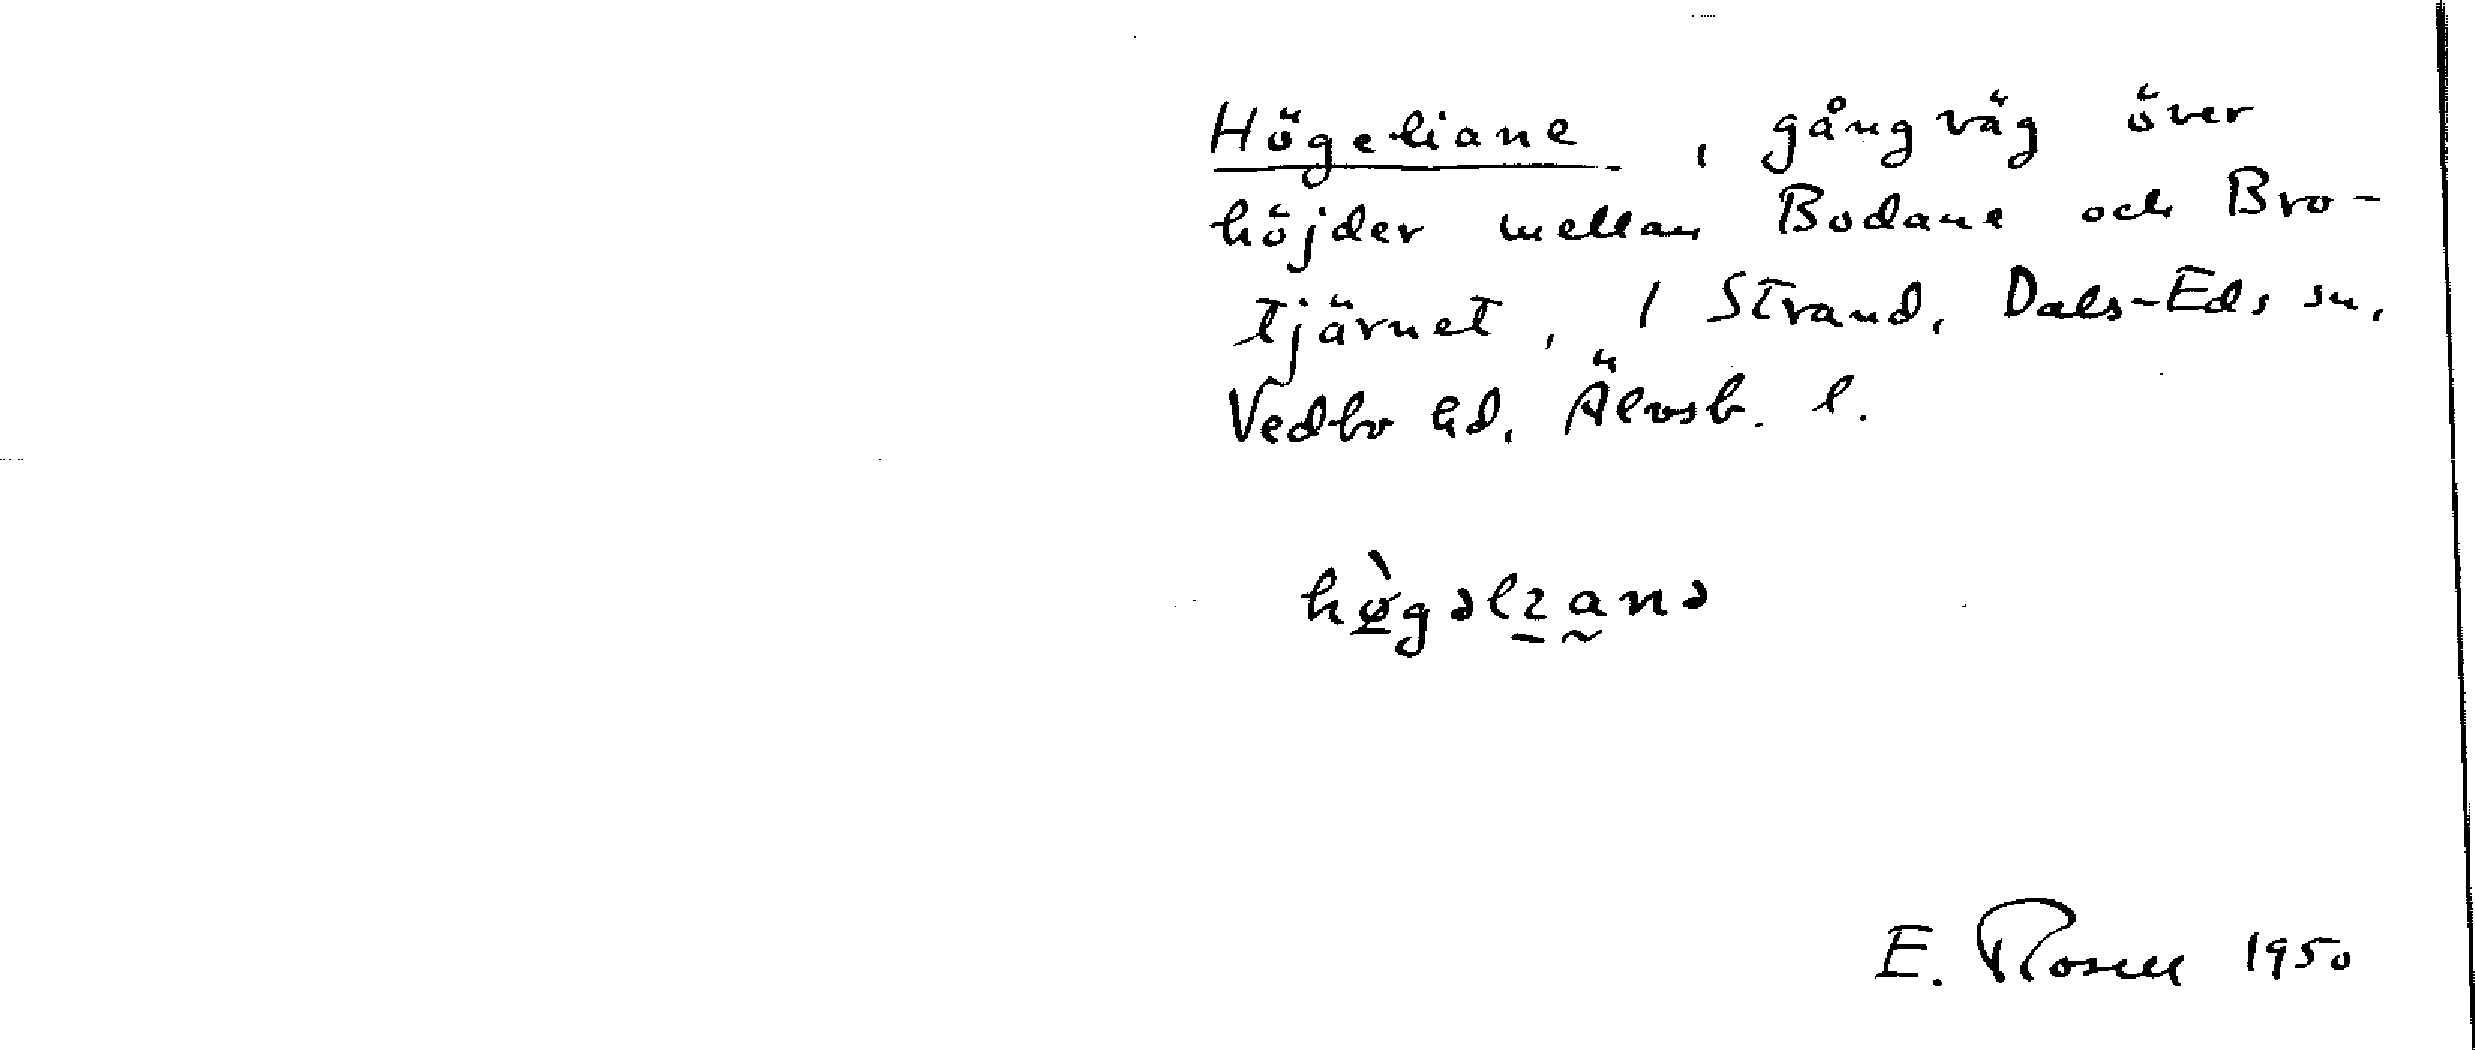 Högeliane, gångväg över
höjder mellan Bodane och Bro-
tjärnet, 1 Strand, Dals-Eds sn,
Vedbo hd, Älvsb. l.
hø̀gəlɪanə
E. Rosell 1950